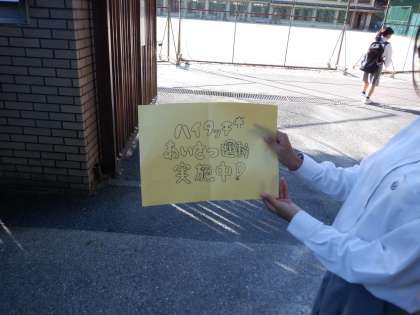 ハイタッチ
あいさつ運動
実施中!